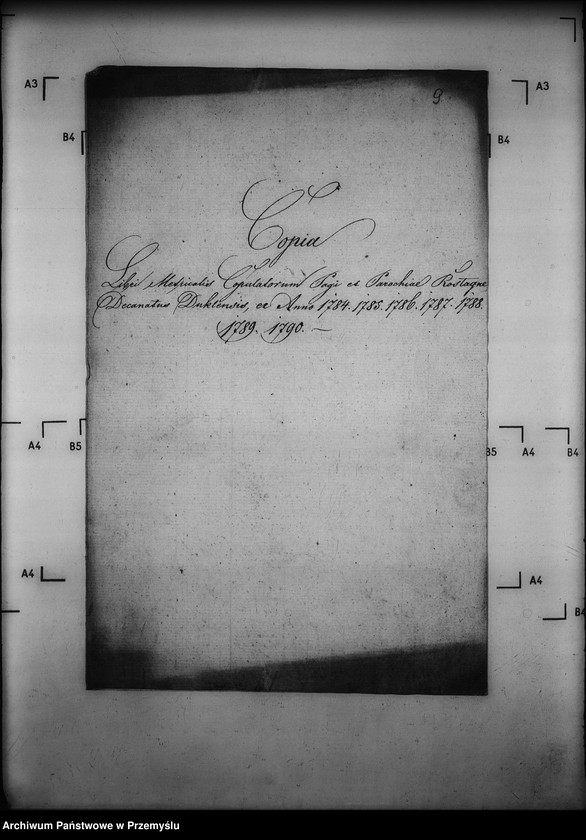 A3
A3
9
B4
B4
Copia
Libri Metricalis Copulatorum Pagi et Parochiae Rostayne
Decanatus Duklensis, ex Anno 1784. 1785. 1786. 1787. 1788.
1789. 1790. —
A4
B5
B5
A4
B4
A4
A4
B4
Archiwum Państwowe w Przemyślu